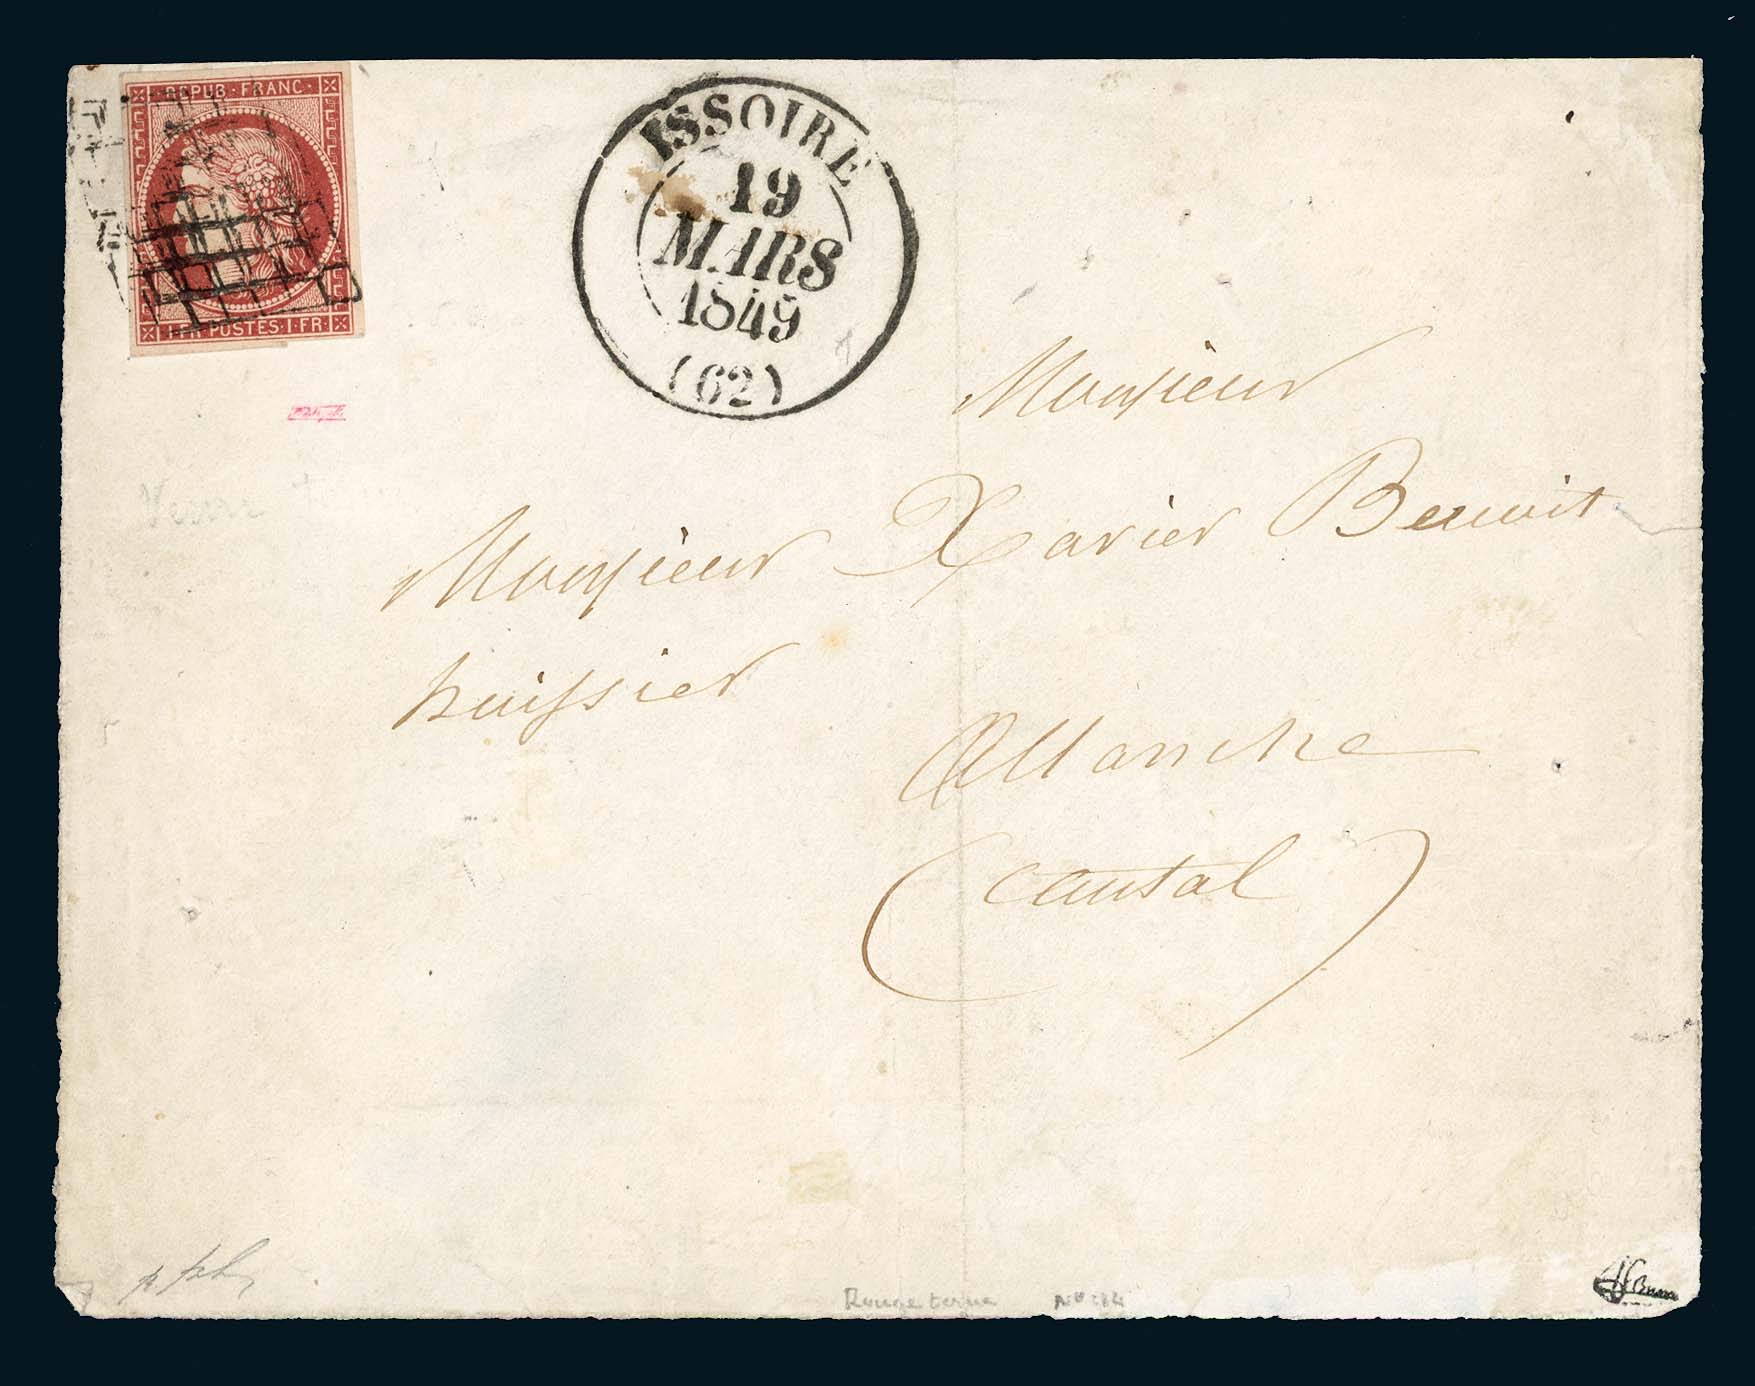 REPUB·FRANC·
1·FR·POSTES·1·FR·
ISSOIRE
19
MARS
1849
(62)
Monsieur
Monsieur Xavier Benoit
huissier
Allanche
Cantal
Rouge terne
Brun